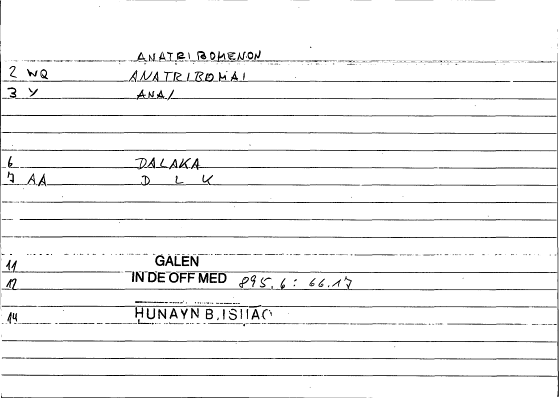 ANATRIBOMENON
2 WQ ANATRIBOMAI
3 Y ANA/
6 DALAKA
7 AA D L K
11 GALEN
12 IN DE OFF MED 895.6: 66.17
14 HUNAYN B.ISHAQ